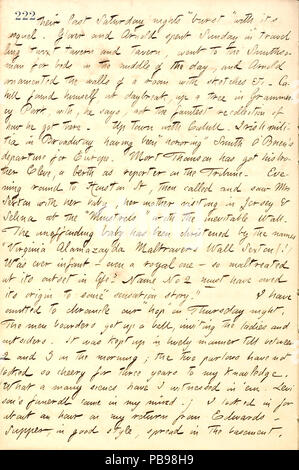 222
their last Saturday night's "burst" with its
sequel. Glover and Arnold spent Sunday in travel
ling 'twixt tavern and tavern, went to the Smithso-
nian for beds in the middle of the day, and Arnold
ornamented the walls of a room with sketches &c. Ca-
hill found himself at daybreak, up a tree in Grammer-
cy Park, with, he says, not the faintest recollection of
how he got there. Up town with Cahill. Irish mili-
tia in Broadway having been "honoring" Smith O'Brien's
departure for Europe. Mort Thomson has got his bro-
ther Clem, a berth as reporter on the Tribune. Eve-
ning round to Houston St, then called and saw Mrs
Sexton with her baby; her mother visiting in Jersey &
Selina at the "Minstrels" with the inevitable Wall.
The unoffending baby has been christened by the name
Virginia Alamazayda Maltravers Wall Sexton!!
Was ever infant — even a royal one — so maltreated
at its outset in life? Name No 2 must have owed
its origin to some sensation story. I have
omitted to chronicle our hop on Thursday night.
The men boarders got up a ball, inviting the ladies and
outsiders. It was kept up in lively manner till between
2 and 3 in the morning; the two parlors have not
looked so cheery for three years to my knowledge.
What a many scenes have I witnessed in 'em. Levi-
son's funeral came in my mind. I looked in for
about an hour on my return from Edwards'.
Supper, in good style, spread in the basement.
alamy
PB98H9